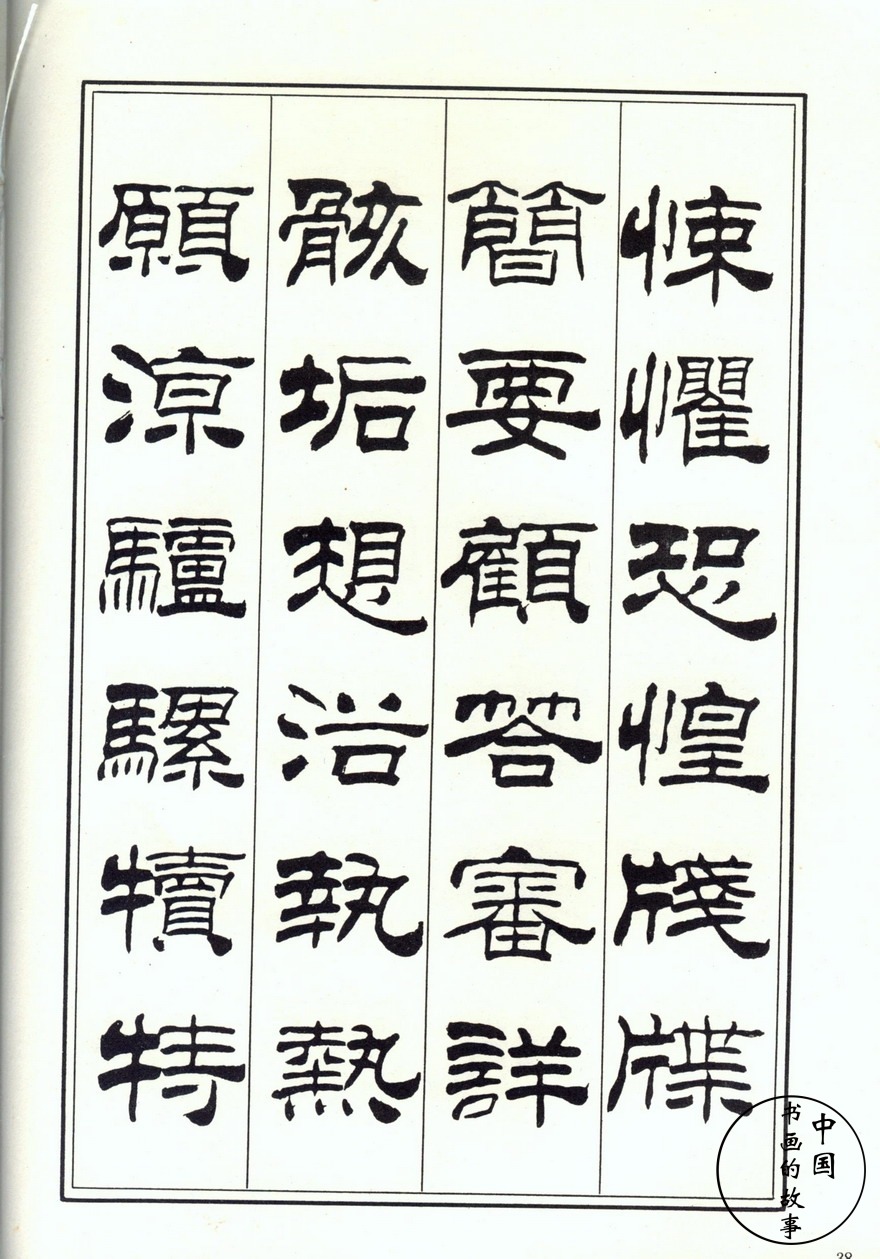 悚懼恐惶牋牒
簡要顧答審詳
骸垢想浴執熱
願涼驢騾犢特
中国
书画的故事
38